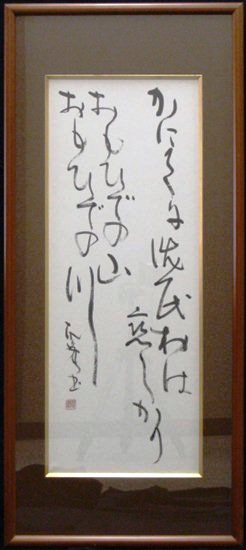 かにかくに渋民村は
恋しかり
おもひでの山
おもひでの川